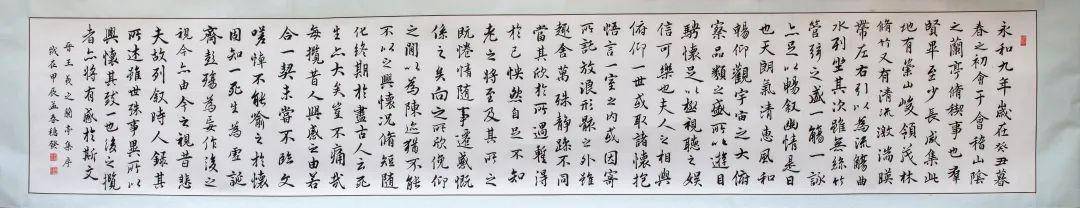 永和九年歲在癸丑暮
春之初會于會稽山陰
之蘭亭脩禊事也羣
賢畢至少長咸集此
地有崇山峻領茂林
脩竹又有清流激湍暎
帶左右引以為流觴曲
水列坐其次雖無絲竹
管弦之盛一觴一詠
亦足以暢敘幽情是日
也天朗氣清惠風和
暢仰觀宇宙之大俯
察品類之盛所以遊目
騁懷足以極視聽之娛
信可樂也夫人之相與
俯仰一世或取諸懷抱
悟言一室之內或因寄
所託放浪形骸之外雖
趣舍萬殊靜躁不同
當其欣於所遇暫得
於己怏然自足不知
老之將至及其所之
既惓情隨事遷感慨
係之矣向之所欣俛仰
之間以為陳迹猶不能
不以之興懷況脩短隨
化終期於盡古人云死
生亦大矣豈不痛哉
每攬昔人興感之由若
合一契未嘗不臨文
嗟悼不能喻之於懷
固知一死生為虛誕
齊彭殤為妄作後之
視今亦由今之視昔悲
夫故列敘時人錄其
所述雖世殊事異所以
興懷其致一也後之攬
者亦將有感於斯文
晉王羲之蘭亭集序
歲在甲辰孟春